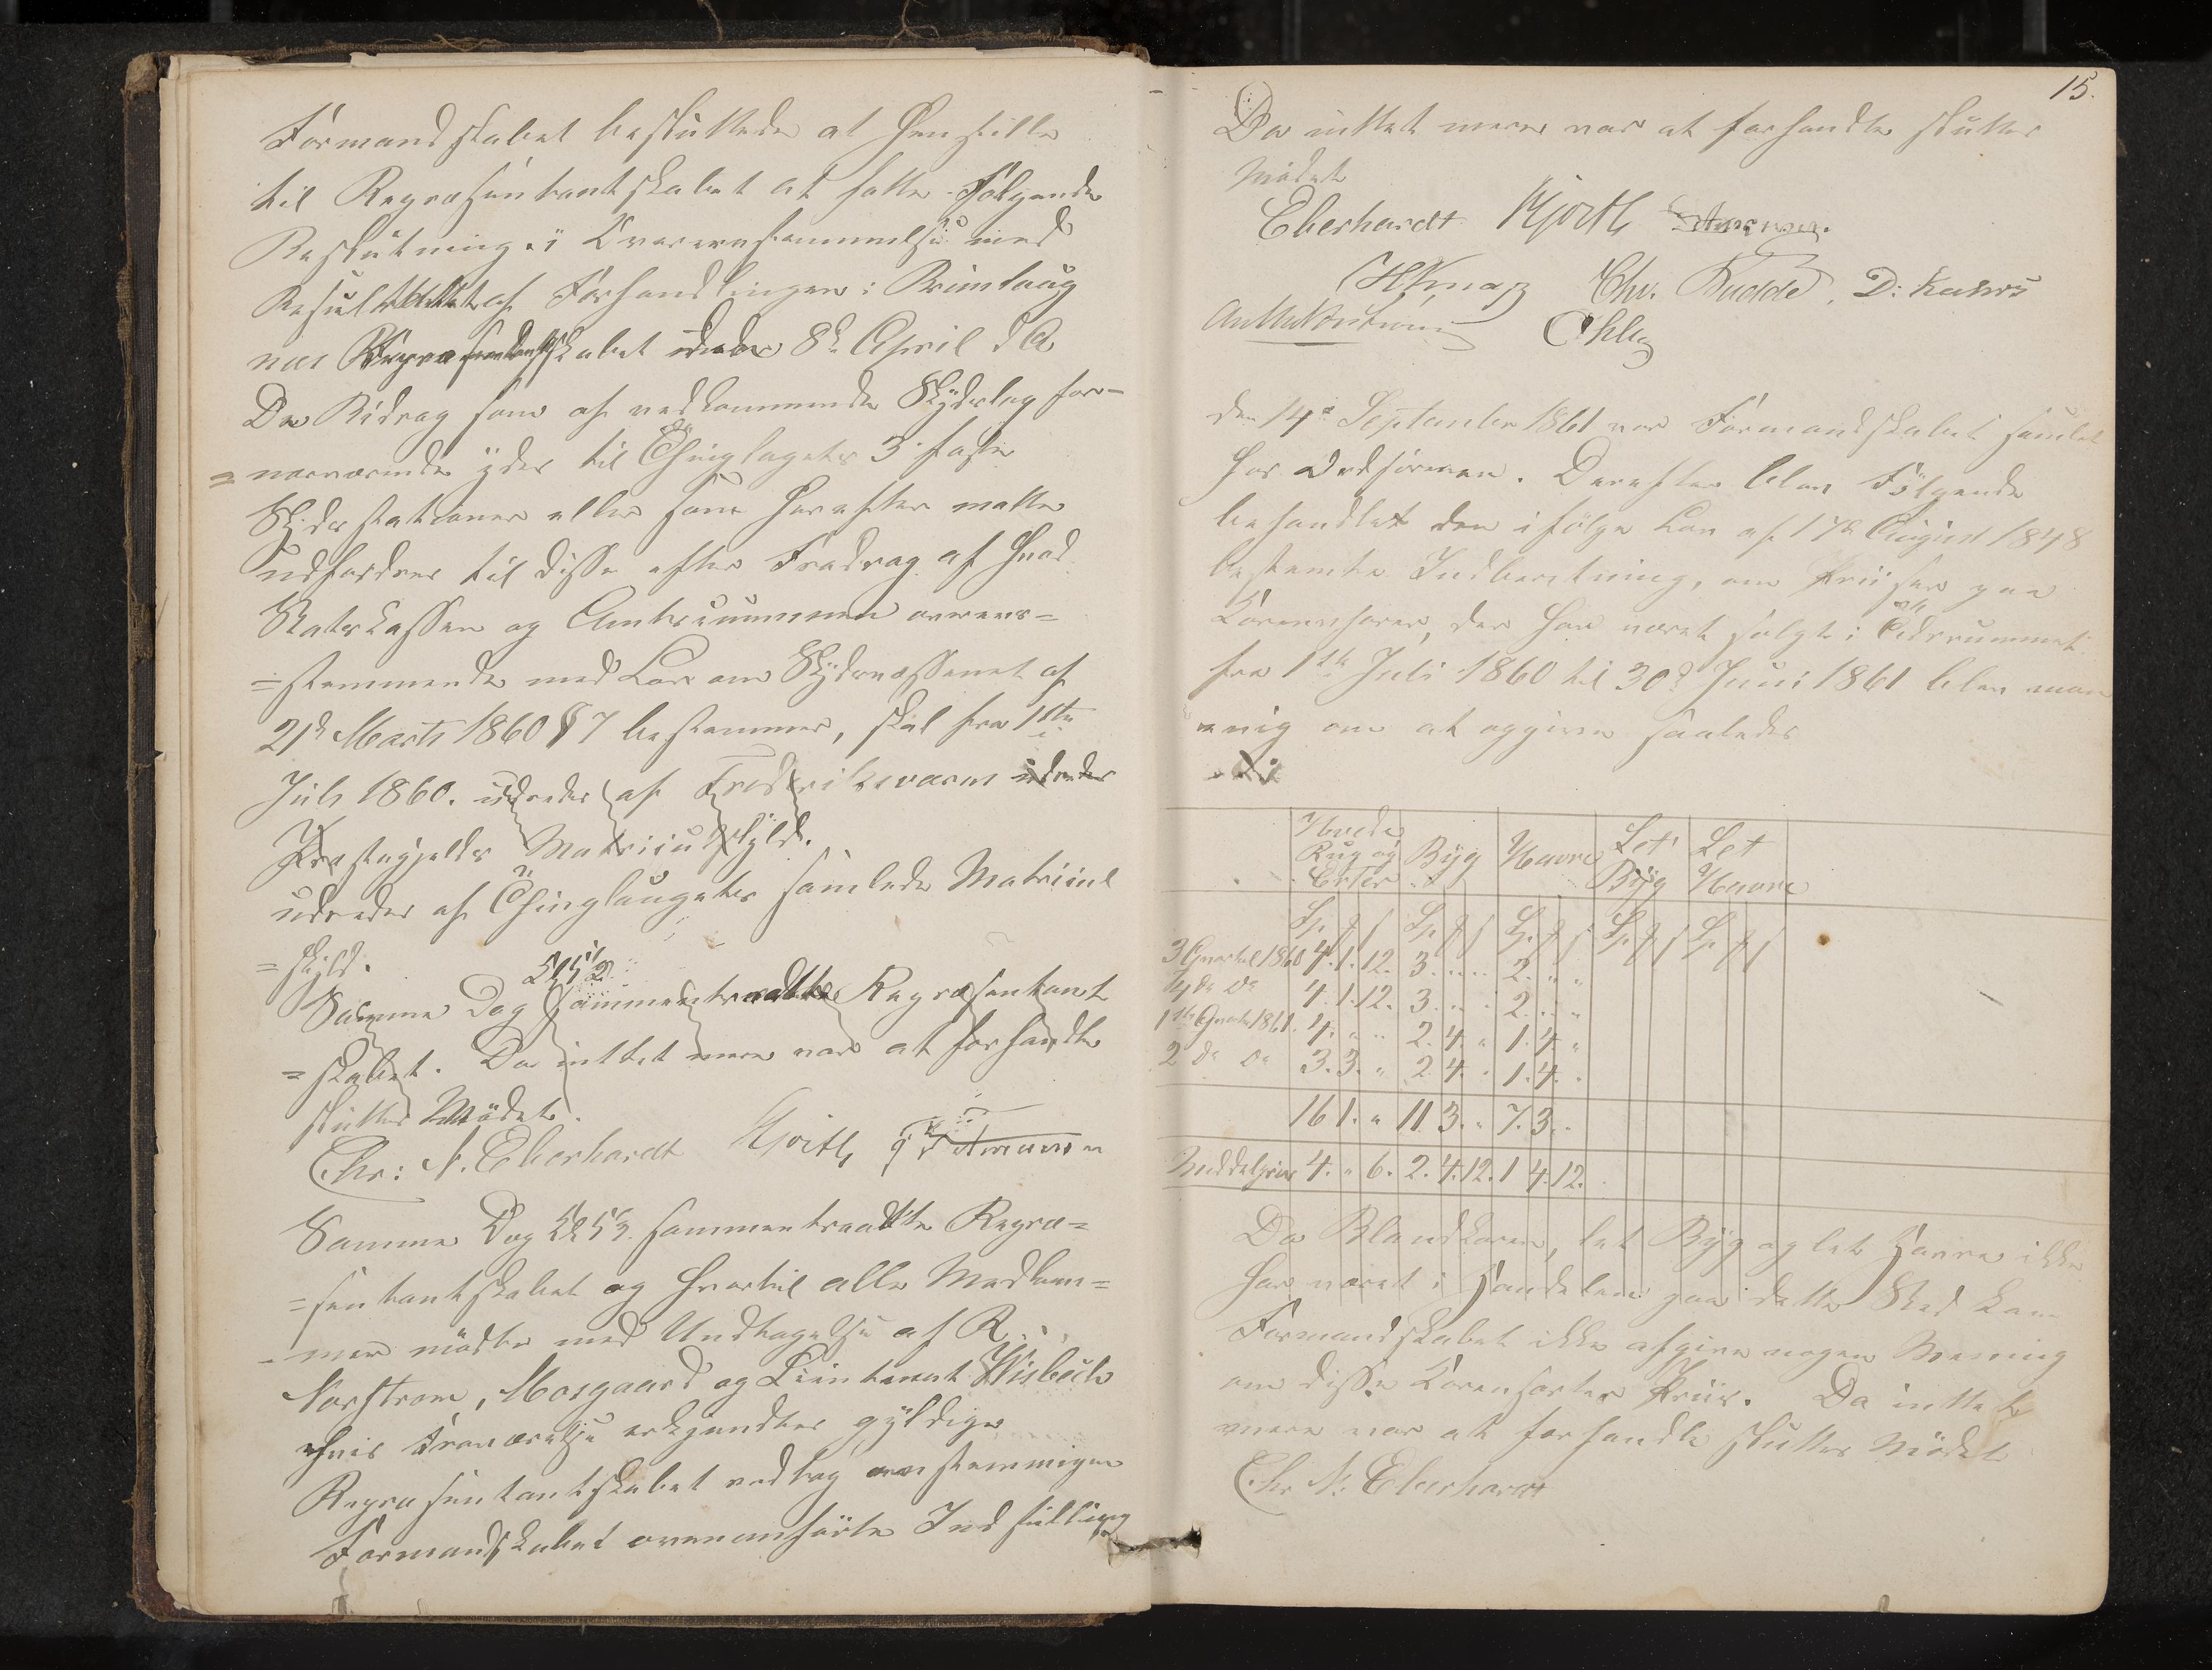 Formandskabet besluttede at henstille
til Repræsentantskabet at fatte følgende
Beslutning i Overeensstemmelse med
Resultatet af Forhandlingen i Brunlaug
næs Repræsentantskabet den 8de April d A
De Bidrag som af vedkommende Skydslag for-
=nærværende ydes til Thinglagets 3 faste
Skydsstationer eller som herefter maatte
udfordres til disse efter Fradrag af hvad
Statskassen og Amtscummunen overens=
=stemmende med Lov om Skydsvæssenet af
21de Marts 1860 § 7 bestemmer, skal fra 1ste
Juli 1860. udredes af Fredriksværns udredes
Præstegjelds Matricul Skyld.
udredes af Thinglaugets samlede Matricul
=skyld.
Samme Dag sammentraadte Repræsentant
=skabet. Da inttet mere var at forhandle
sluttes Mødet.
Chr: N. Eberhardt Hjorth
Samme Dag Kl 5½ sammentraadte Repræ=
=sentantskabet og hvortil alle Medlem=
=mer mødte med Undtagelse af R.
Norstrøm, Mosgaard og Lieutenant Wisbech
hvis Fraværelse erkjendtes gyldige
Repræsentantskabet vedtog eenstemmigen
Formandskabet ovenanførte Indstilling
15.
Da inttet mere var at forhandle sluttes
Mødet
Eberhardt Hjorth
Chr. Budde, D:
Ohlen
den 14de September 1861 var Formandskabet samlet
hos Ordføreren. Derefter blev Følgende
behandlet den ifølge Lov af 17de August 1848
bestemte Indberetning, om Priisen paa
Kornvarer, der har været solgt i Tidsrummet
fra 1ste Juli 1860 til 30te Juni 1861 blev man
enig om at opgives saaledes
Hvede Rug og Erter Byg Havre Let Byg Let Havre
3 Qvartal 1860 4. 1. 12. 3. " " 2. " "
4de do 4. 1. 12. 3. " " 2. " "
1ste Qvart 1861. 4. " " 2. 4. " 1. 4. "
2 do do 3. 3. " 2 4. " 1. 4. "
16 1. " 11 3. " 7. 3. "
Middelpriis 4. " 6. 2. 4. 12. 1 4. 12.
Da Blandkorn, let Byg og let Havre ikke
har været i Handelen paa dette Sted kan
Formandskabet ikke afgive nogen Mening
om disse Kornsorters Priis. Da inttet
mere var at forhandle sluttes Mødet
Chr N. Eberhardt